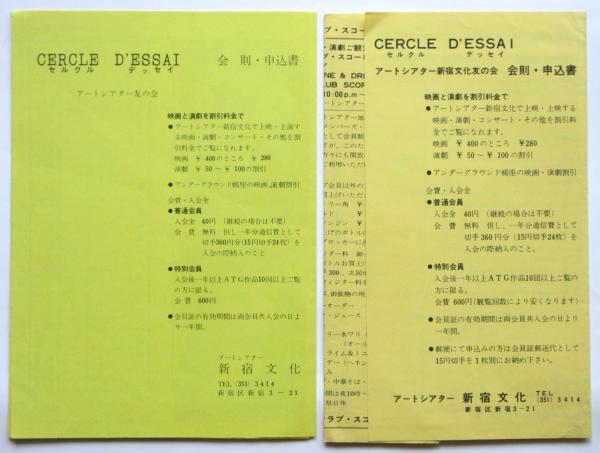 CERCLE D'ESSAI
セルクル デッセイ
会則・申込書
アートシアター友の会
映画と演劇を割引料金で
●アートシアター新宿文化で上映・上演す
る映画・演劇・コンサート・その他を割
引料金でご覧になれます。
映画 ￥400のところ ￥280
演劇 ￥50～￥100の割引
●アンダーグラウンド蝎座の映画、演劇割引
会費・入会金
●普通会員
入会金 40円 (継続の場合は不要)
会費 無料 但し、一年分通信費として
切手360円分(15円切手24枚)を
入会の際納入のこと
●特別会員
入会後一年以上ATG作品10回以上ご覧
の方に限る。
会費 600円
●会員証の有効期間は両会員共入会の日よ
り一年間。
アートシアター
新宿文化
TEL (351) 3414
新宿区新宿3－21
ブ・スコー
・演劇ご観
NE & DRI
LUB SCOR
10:00p.m～
メンバーズ・
として会員制
すが、このた
方々にも開放
ご利用いただ
ブ会員以外の
トリー角 ￥
ルド ￥
・ジン ￥
ロッカーに
トルお買上
300、次回か
、御飲物の
・オーダー
・ジュース
リー水ワリ(
(オール
ライム&トニ
・中華そば・
間は夜10時～
祭日休
クラブ・スコ
CERCLE D'ESSAI
セルクル デッセイ
アートシアター新宿文化友の会 会則・申込書
映画と演劇を割引料金で
●アートシアター新宿文化で上映・上映する
映画・演劇・コンサート・その他を割引料
金でご覧になれます。
映画 ￥400のところ ￥280
演劇 ￥50～￥100の割引
●アンダーグラウンド蝎座の映画・演劇割引
会費・入会金
●普通会員
入会金 40円 (継続の場合は不要)
会費 無料 但し、一年分通信費として
切手360円分(15円切手24枚)を
入会の際納入のこと
●特別会員
入会後一年以上ATG作品10回以上ご覧の
方に限る。
会費 600円(観覧回数により安くなります)
●会員証の有効期間は両会員共入会の日より
一年間。
●郵便にて申込みの方は会員証郵送代として
15円切手を1枚別にお納め下さい。
アートシアター 新宿文化 TEL (351) 3414
新宿区新宿3－21